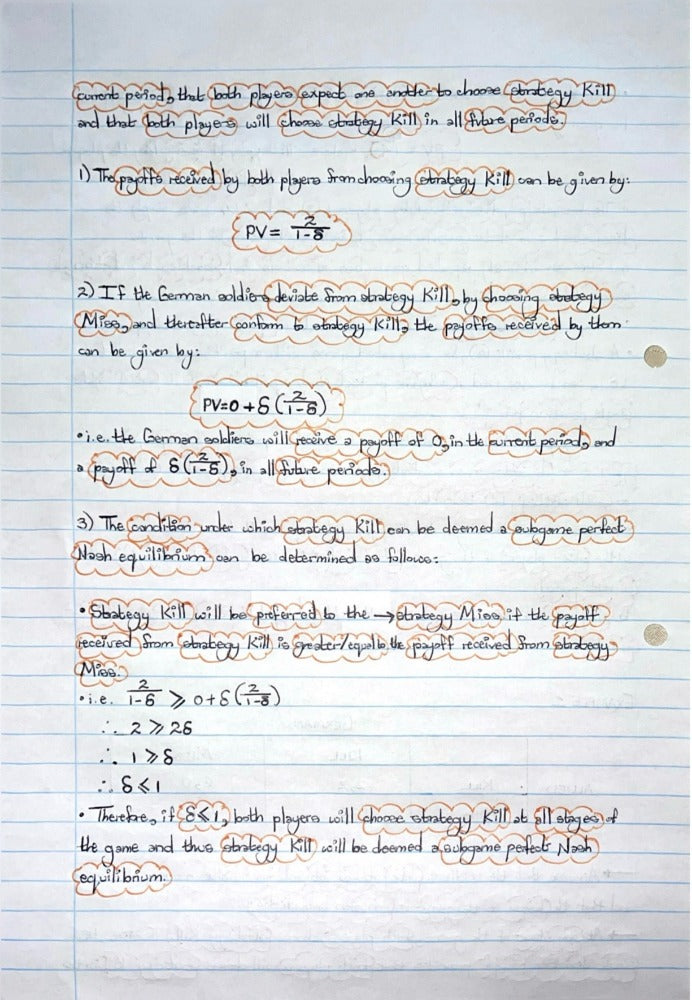 current period, that both players expect one another to choose strategy Kill
and that both players will choose strategy Kill in all future periods.
1) The payoffs received by both players from choosing strategy Kill can be given by:
PV = 2/1-δ
2) If the German soldiers deviate from strategy Kill, by choosing strategy
Miss, and thereafter conform to strategy Kill, the payoffs received by them
can be given by:
PV=0+δ(2/1-δ)
•i.e. the German soldiers will receive a payoff of 0, in the current period, and
a payoff of δ(2/1-δ), in all future periods.
3) The condition under which strategy Kill can be deemed a subgame perfect
Nash equilibrium can be determined as follows:
• Strategy Kill will be preferred to the → strategy Miss if the payoff
received from strategy Kill is greater/equal to the payoff received from strategy
Miss.
•i.e. 2/1-δ ⩾ 0+δ(2/1-δ)
∴ 2 ⩾ 2δ
∴ 1 ⩾ δ
∴ δ ⩽ 1
• Therefore, if δ⩽1, both players will choose strategy Kill at all stages of
the game and thus strategy Kill will be deemed a subgame perfect Nash
equilibrium.